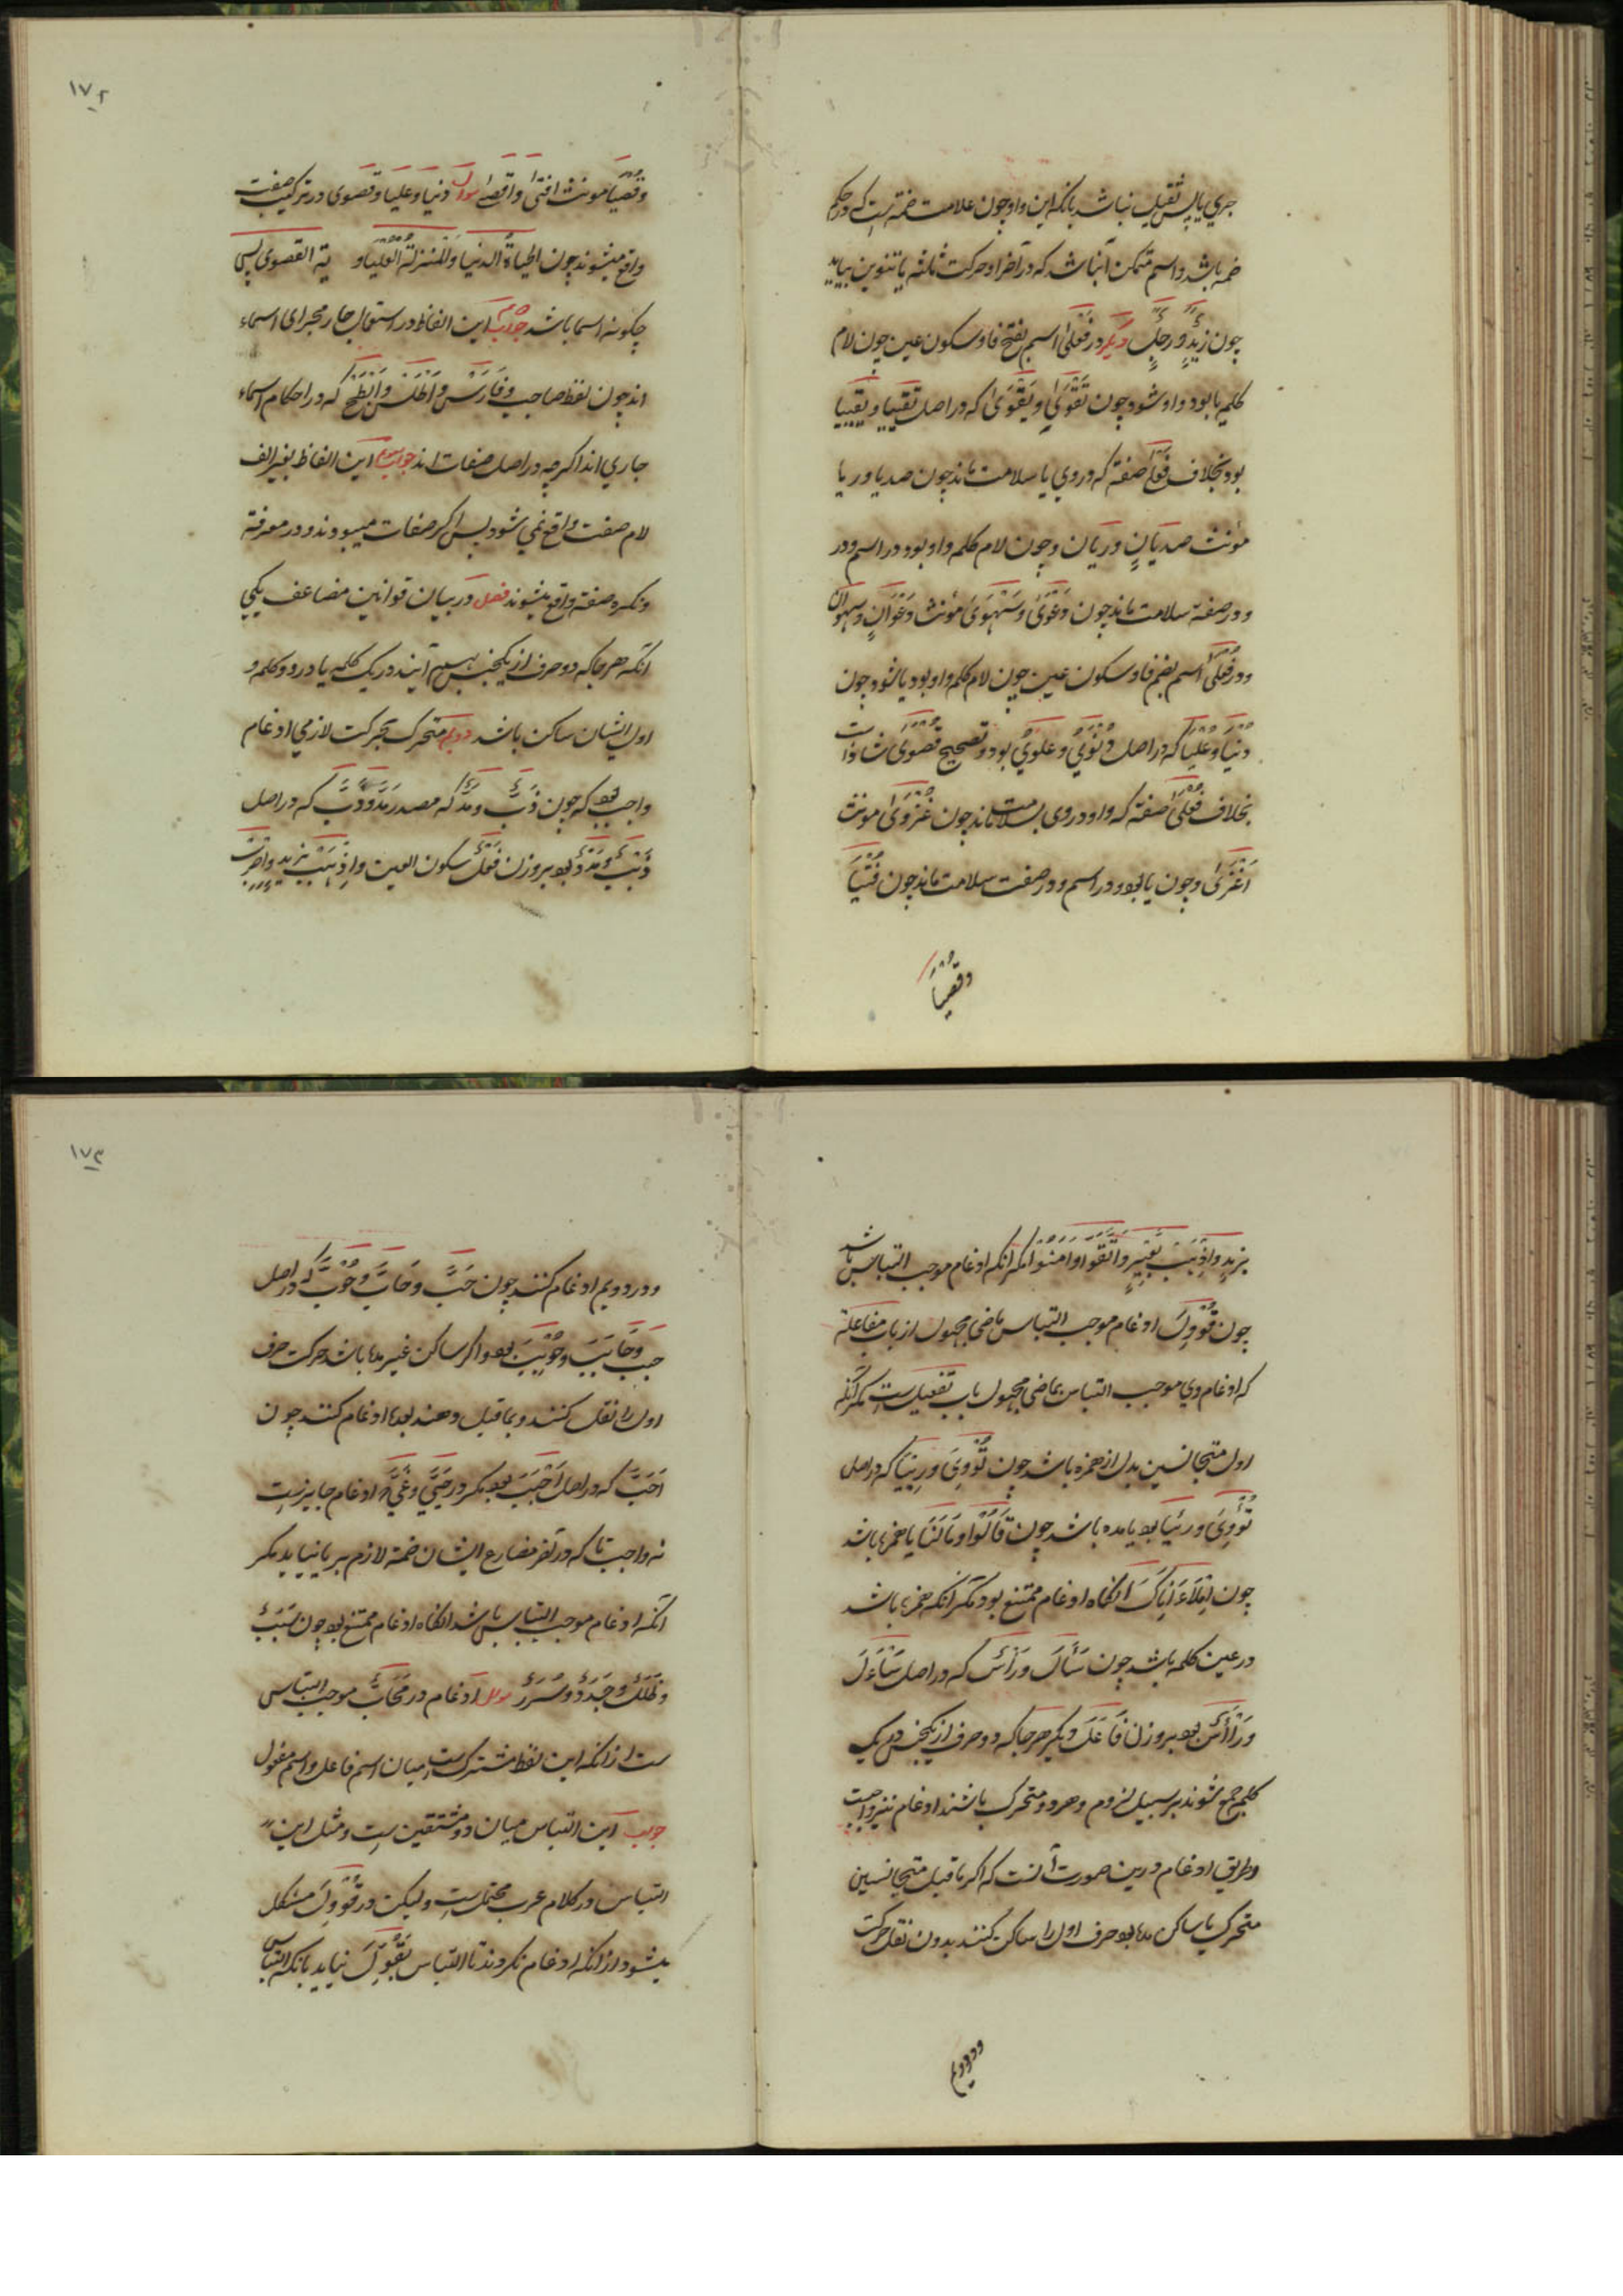 جري یا پس ثقیل نباشد بانکه این واو چون علامت ضمه است که در حکم
ضمه باشد و اسم متمکن آنباشد که در آخر او حرکت ثلثه یا تنوین بیاید
چون زَیْدٍ وَرَجُلٍ دیگر در فَعْلَیٰ اسم بفتح فا و سکون عین چون لام
کلمه یا بود واو شود چون تَقْوَیٰ و بَقْوَیٰ که در اصل تقییا و بقییا
بود بخلاف فَعْلَیٰ صفته که در وي یا سلامت ماند چون صدیا و ریا
مؤنث صدیَانٍ و ریَان و چون لام کلمه واو بود در اسم و در
و در صفته سلامت ماند چون دَعْوَیٰ و شَهْوَیٰ مؤنث دَعْوَانٍ و شهوان
و در فُعْلَیٰ اسم بضم فا و سکون عین چون لام کلمه واو بود یا شود چون
دُنْیَا و عُلْیَا که در اصل دُنْوَيٰ و علْوَيٰ بود و تصحیح قُصْوَیٰ شاذ است
بخلاف فُعْلَیٰ صفته که واو در وی بسلامت ماند چون غُزْوَیٰ مونث
اَغْزَیٰ و چون یا بود در اسم و در صفت سلامت ماند چون فُتْیَا
وقُصْیَا
۱۷۲
وقُصْیَا مونث افتیٰ و اقصیٰ سوال دنیا و علیا و قصوی در ترکیب صفت
واقع میشوند چون الحیاةُ الدنیَا وَالْمَنزلَةُ الْعُلْیَا و یة القصوی پس
چکونه اسما باشد جواب این الفاظ در استعمال جار مجرای اسماء
اند چون لفظ صاحب و فَارَسْ و اَطْلَسْ و اَبْطَحْ که در احکام اسماء
جاري اند اکرچه در اصل صفات اند جواب سوم این الفاظ بغیر الف
لام صفت واقع نمی شود پس اکر صفات میبودند و در معرفة
و نکره صفة واقع میشوند فصل در بیان قوانین مضاعف یکی
آنکه هر جا که دو حرف از یکجنس بهم آیند در یک کلمه یا در دو کلمه و
اول ایشان ساکن باشد دویم متحرک بحرکت لازمي ادغام
واجب بود که چون ذَبٌّ و مَدٌّ که مصدر مَدَّ وَ ذَبَّ که در اصل
ذَبْبٌ و مَدْدٌ بود بروزن فَعْلٌ بسکون العین و اِذْهَبْ بِزید واضرب
بزیدٍ واِذْهَبْ بِعِیرٍ واتَّقَوْا وآمَنُوْا مکر آنکه ادغام موجب التباس باشد
چون قُوْوِلَ ادغام موجب التباس ماضی مجهول از باب مفاعلة
که ادغام وي موجب التباس بماضي مجهول باب تفعیل است مکر آنکه
اول متجانسین بدل از همزه باشد چون تُوْوِيَ و رِیْیَا که در اصل
تُؤْوِيَ و رِئْیَا بود یا مده باشد چون قَالُوْا وَمَا لَنَا یا همزه باشد
چون اِمْلَاءْ اَبَاکَ آنکاه ادغام ممتنع بود مکر آنکه همزه باشد
در عین کلمه باشد چون سَأَّلَ ورَأَّسَ که در اصل سَأْءَلَ
ورَأْأَسَ بود بروزن فَعَّلَ دیکر هر جا که دو حرف از یکجنس در یک
کلمه جمع شوند بر سبیل لزوم و هر دو متحرک باشند ادغام نیز واجبست
و طریق ادغام درین صورت آنست که اکر ما قبل متجانسین
متحرک یا ساکن مده بود حرف اول را ساکن کنند بدون نقل حرکت
و در دویم
۱۷۳
و در دویم ادغام کنند چون حَبَّ و حَابَّ و حُوْبَّ که در اصل
حبب وحَابَبَ و حُوْبِبَ بود و اکر ساکن غیر مده باشد حرکت حرف
اول را نقل کنند و بما قبل دهند بعده ادغام کنند چون
اَحَبَّ که در اصل اَحْبَبَ بود مکر در حَیِيَ و عَیِيَ که ادغام جایز است
نه واجب تا که در آخر مضارع ایشان ضمه لازم بر یا نیاید مکر
آنکه ادغام موجب التباس باشد آنکاه ادغام ممتنع بود چون سَبَبٌ
و ظَلَلٌ و جَدَدٌ و سُرَرٌ سوال ادغام در مُحَابٌّ موجب التباس
ست از آنکه این لفظ مشترک ست میان اسم فاعل و اسم مفعول
جواب این التباس میان دو مشتقین ست و مثل این
التباس در کلام عرب محتمل ست ولیکن در قُوْوِلَ مشکل
میشود از آنکه ادغام نکردند تا التباس بقُوِّلَ نیاید بانکه التباس